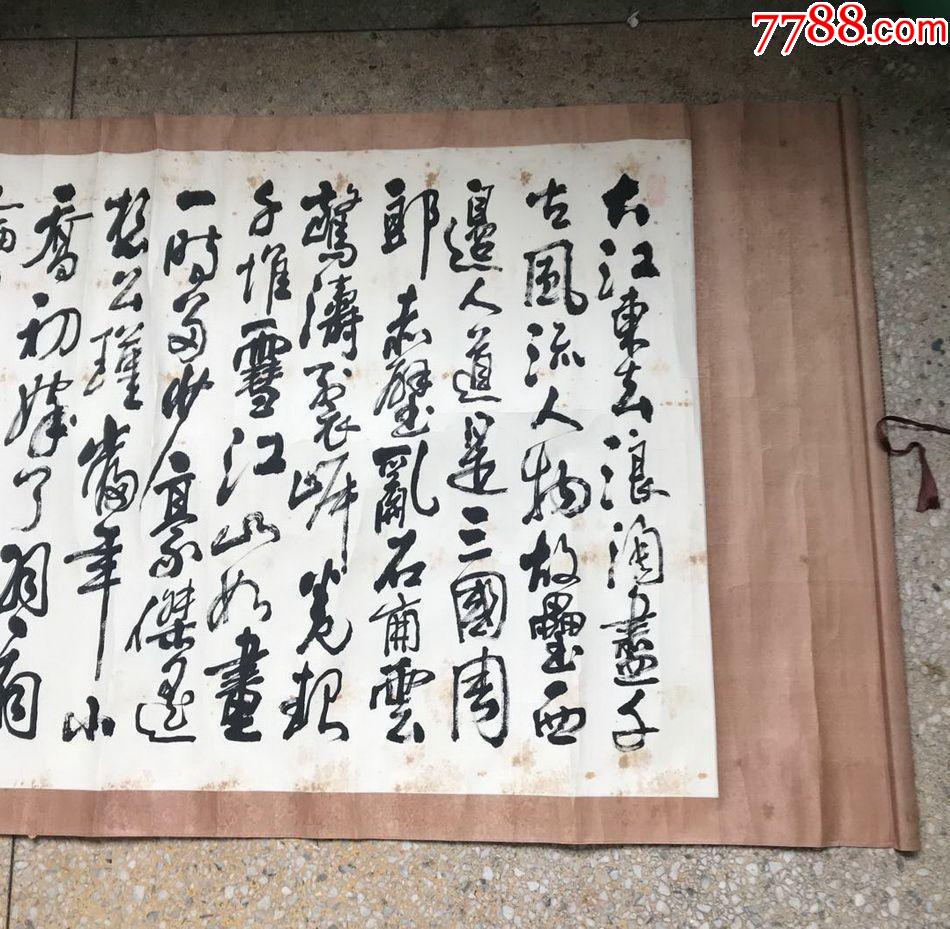 大江東去浪淘盡千
古風流人物故壘西
邊人道是三國周
郎赤壁亂石崩雲
驚濤裂岸卷起
千堆雪江山如畫
一時多少豪傑遙
想公瑾當年小
喬初嫁了羽扇
7788.com